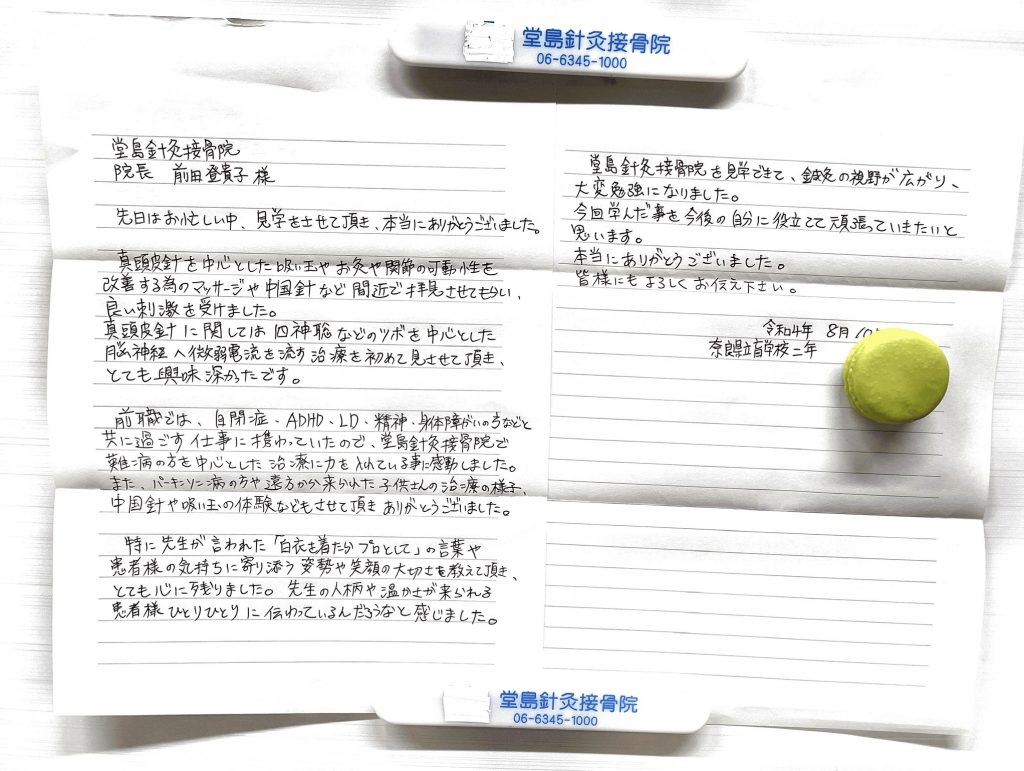 堂島針灸接骨院
06-6345-1000
堂島針灸接骨院
院長 前田登貴子様
先日はお忙しい中、見学をさせて頂き、本当にありがとうございました。
真頭皮針を中心とした吸い玉やお灸や関節の可動性を
改善する為のマッサージや中国針など間近で拝見させてもらい、
良い刺激を受けました。
真頭皮針に関しては四神聡などのツボを中心とした
脳神経へ微弱電流を流す治療を初めて見させて頂き、
とても興味深かったです。
前職では、自閉症・ADHD・LD・精神・身体障がいの方などと
共に過ごす仕事に携わっていたので、堂島針灸接骨院で
難病の方を中心とした治療に力を入れている事に感動しました。
また、パーキンソン病の方や遠方から来られた子供さんの治療の様子、
中国針や吸い玉の体験などもさせて頂きありがとうございました。
特に先生が言われた「白衣を着たらプロとして」の言葉や
患者様の気持ちに寄り添う姿勢や笑顔の大切さを教えて頂き、
とても心に残りました。先生の人柄や温かさが来られる
患者様ひとりひとりに伝わっているんだろうなと感じました。
堂島針灸接骨院を見学できて、鍼灸の視野が広がり、
大変勉強になりました。
今回学んだ事を今後の自分に役立てて頑張っていきたいと
思います。
本当にありがとうございました。
皆様にもよろしくお伝え下さい。
令和4年 8月
奈良県立盲学校二年
堂島針灸接骨院
06-6345-1000